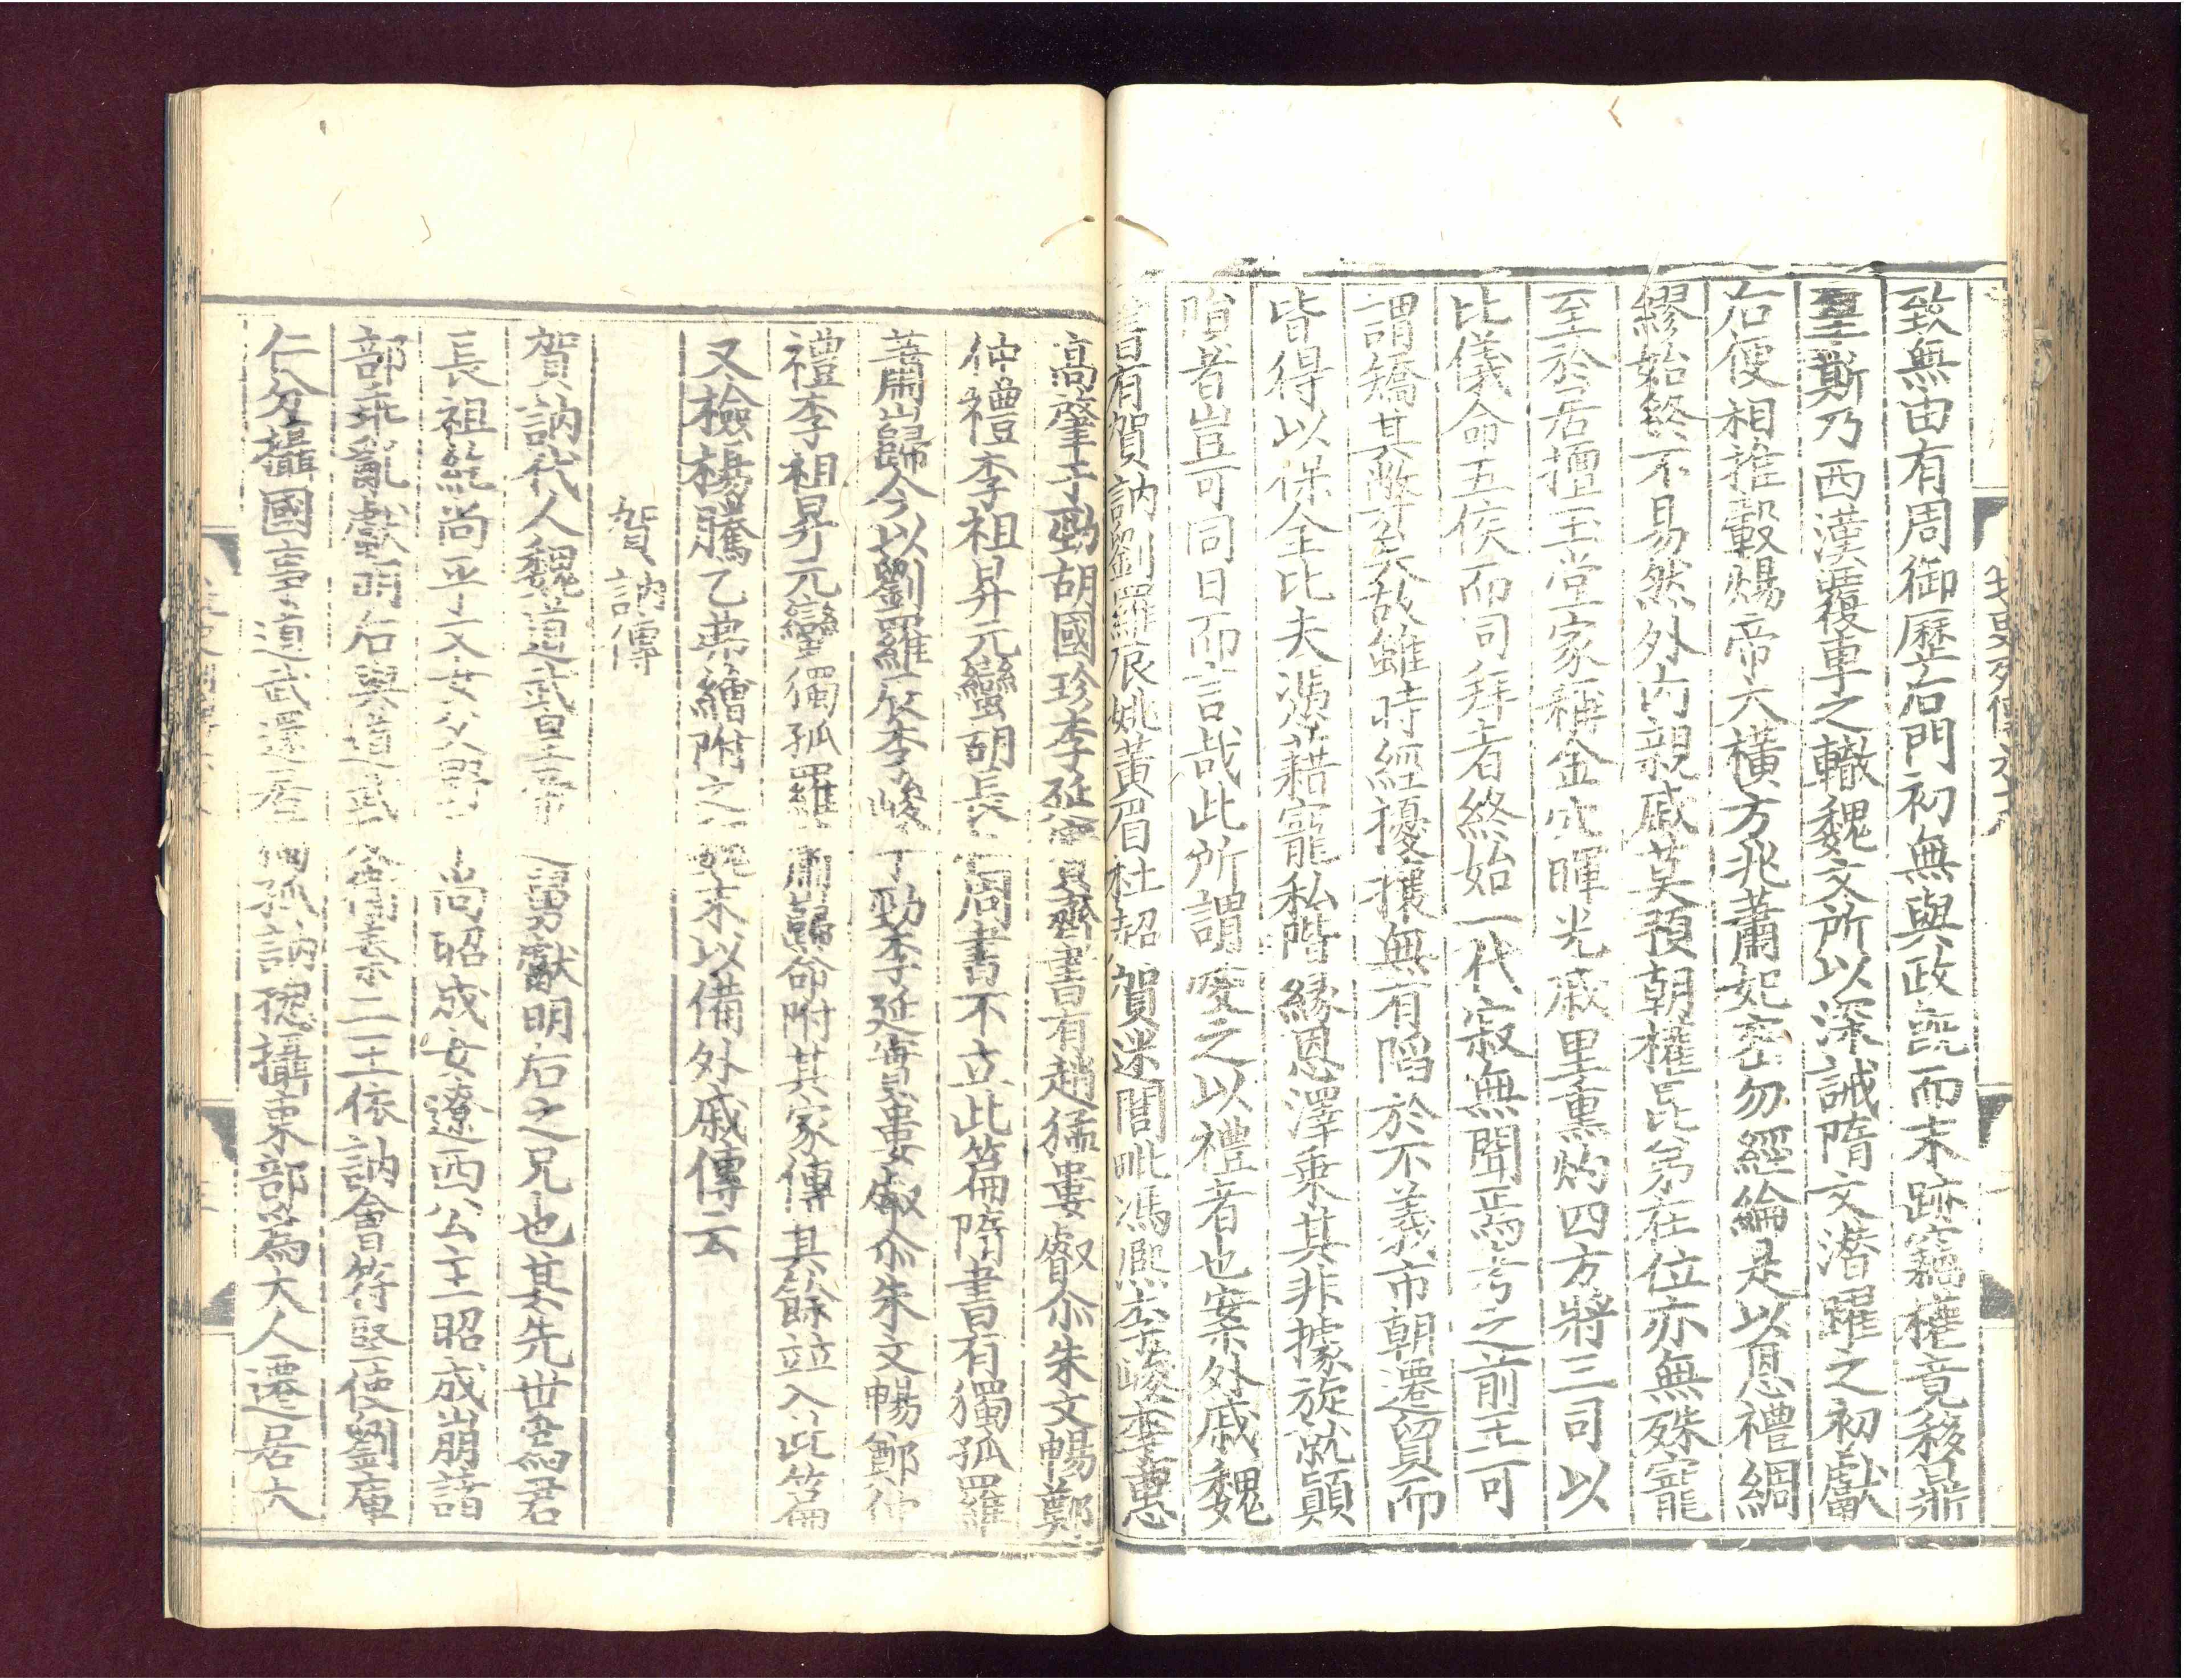 致無由有周御歷后門初無與政旣而末跡竊權竟移鼎
璽斯乃西漢覆車之轍魏文所以深誡隋文潛躍之初獻
后便相推轂煬帝大橫方兆蕭妃密勿經綸是以恩禮綢
繆始終不易然外內親戚莫預朝權昆弟在位亦無殊寵
至於居擅玉堂家稱金穴暉光戚里熏灼四方將三司以
比儀命五侯而同拜者終始一代寂無聞焉考之前王可
謂矯其敝矣故雖時經擾攘無有陷於不義市朝遷貿而
皆得以保全比夫憑藉寵私階緣恩澤乗其非據旋就顚
隕者豈可同日而言哉此所謂愛之以禮者也案外戚魏
書有賀訥劉羅辰姚黃眉杜超賀迷閭毗馮熙李峻李惠
高肇于勁胡國珍李延寔齊書有趙猛婁叡尒朱文暢鄭
仲禮李祖昇元蠻胡長仁周書不立此篇隋書有獨孤羅
蕭巋今以劉羅辰李峻于勁李延寔婁叡尒朱文暢鄭仲
禮李祖昇元蠻獨孤羅蕭巋命附其家傳其餘並入此篇
又檢楊騰乙弗繪附之魏末以備外戚傳云
賀訥傳
賀訥代人魏道武皇帝之舅獻明后之兄也其先世爲君
長祖紇尚平文女父野干尚昭成女遼西公主昭成崩諸
部乖亂獻明后與道武及衞秦二王依訥會苻堅使劉庫
仁分攝國事道武還居獨孤訥摠攝東部爲大人遷居大